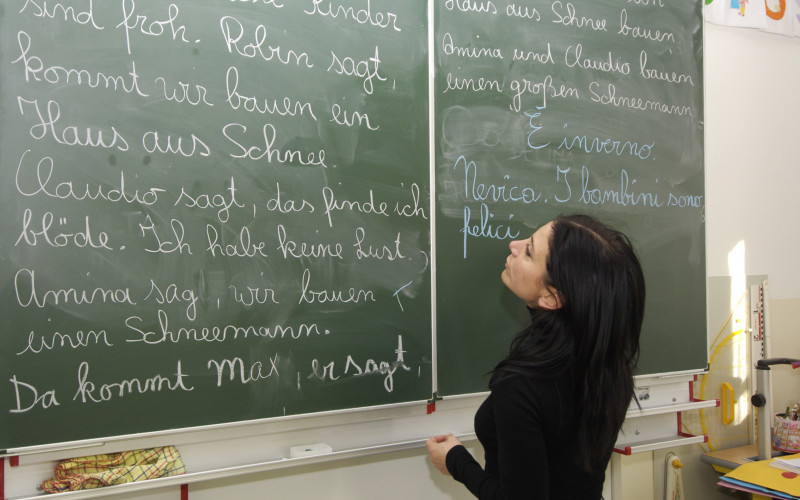 Kinder
sind froh. Robin sagt,
kommt wir bauen ein
Haus aus Schnee.
Claudio sagt, das finde ich
blöde. Ich habe keine Lust.
Amina sag, wir bauen
einen Schneemann.
Da kommt Max, er sagt,
Haus aus Schnee bauen,
Amina und Claudio bauen
einen großen Schneemann
È inverno.
Nevica. I bambini sono
felici